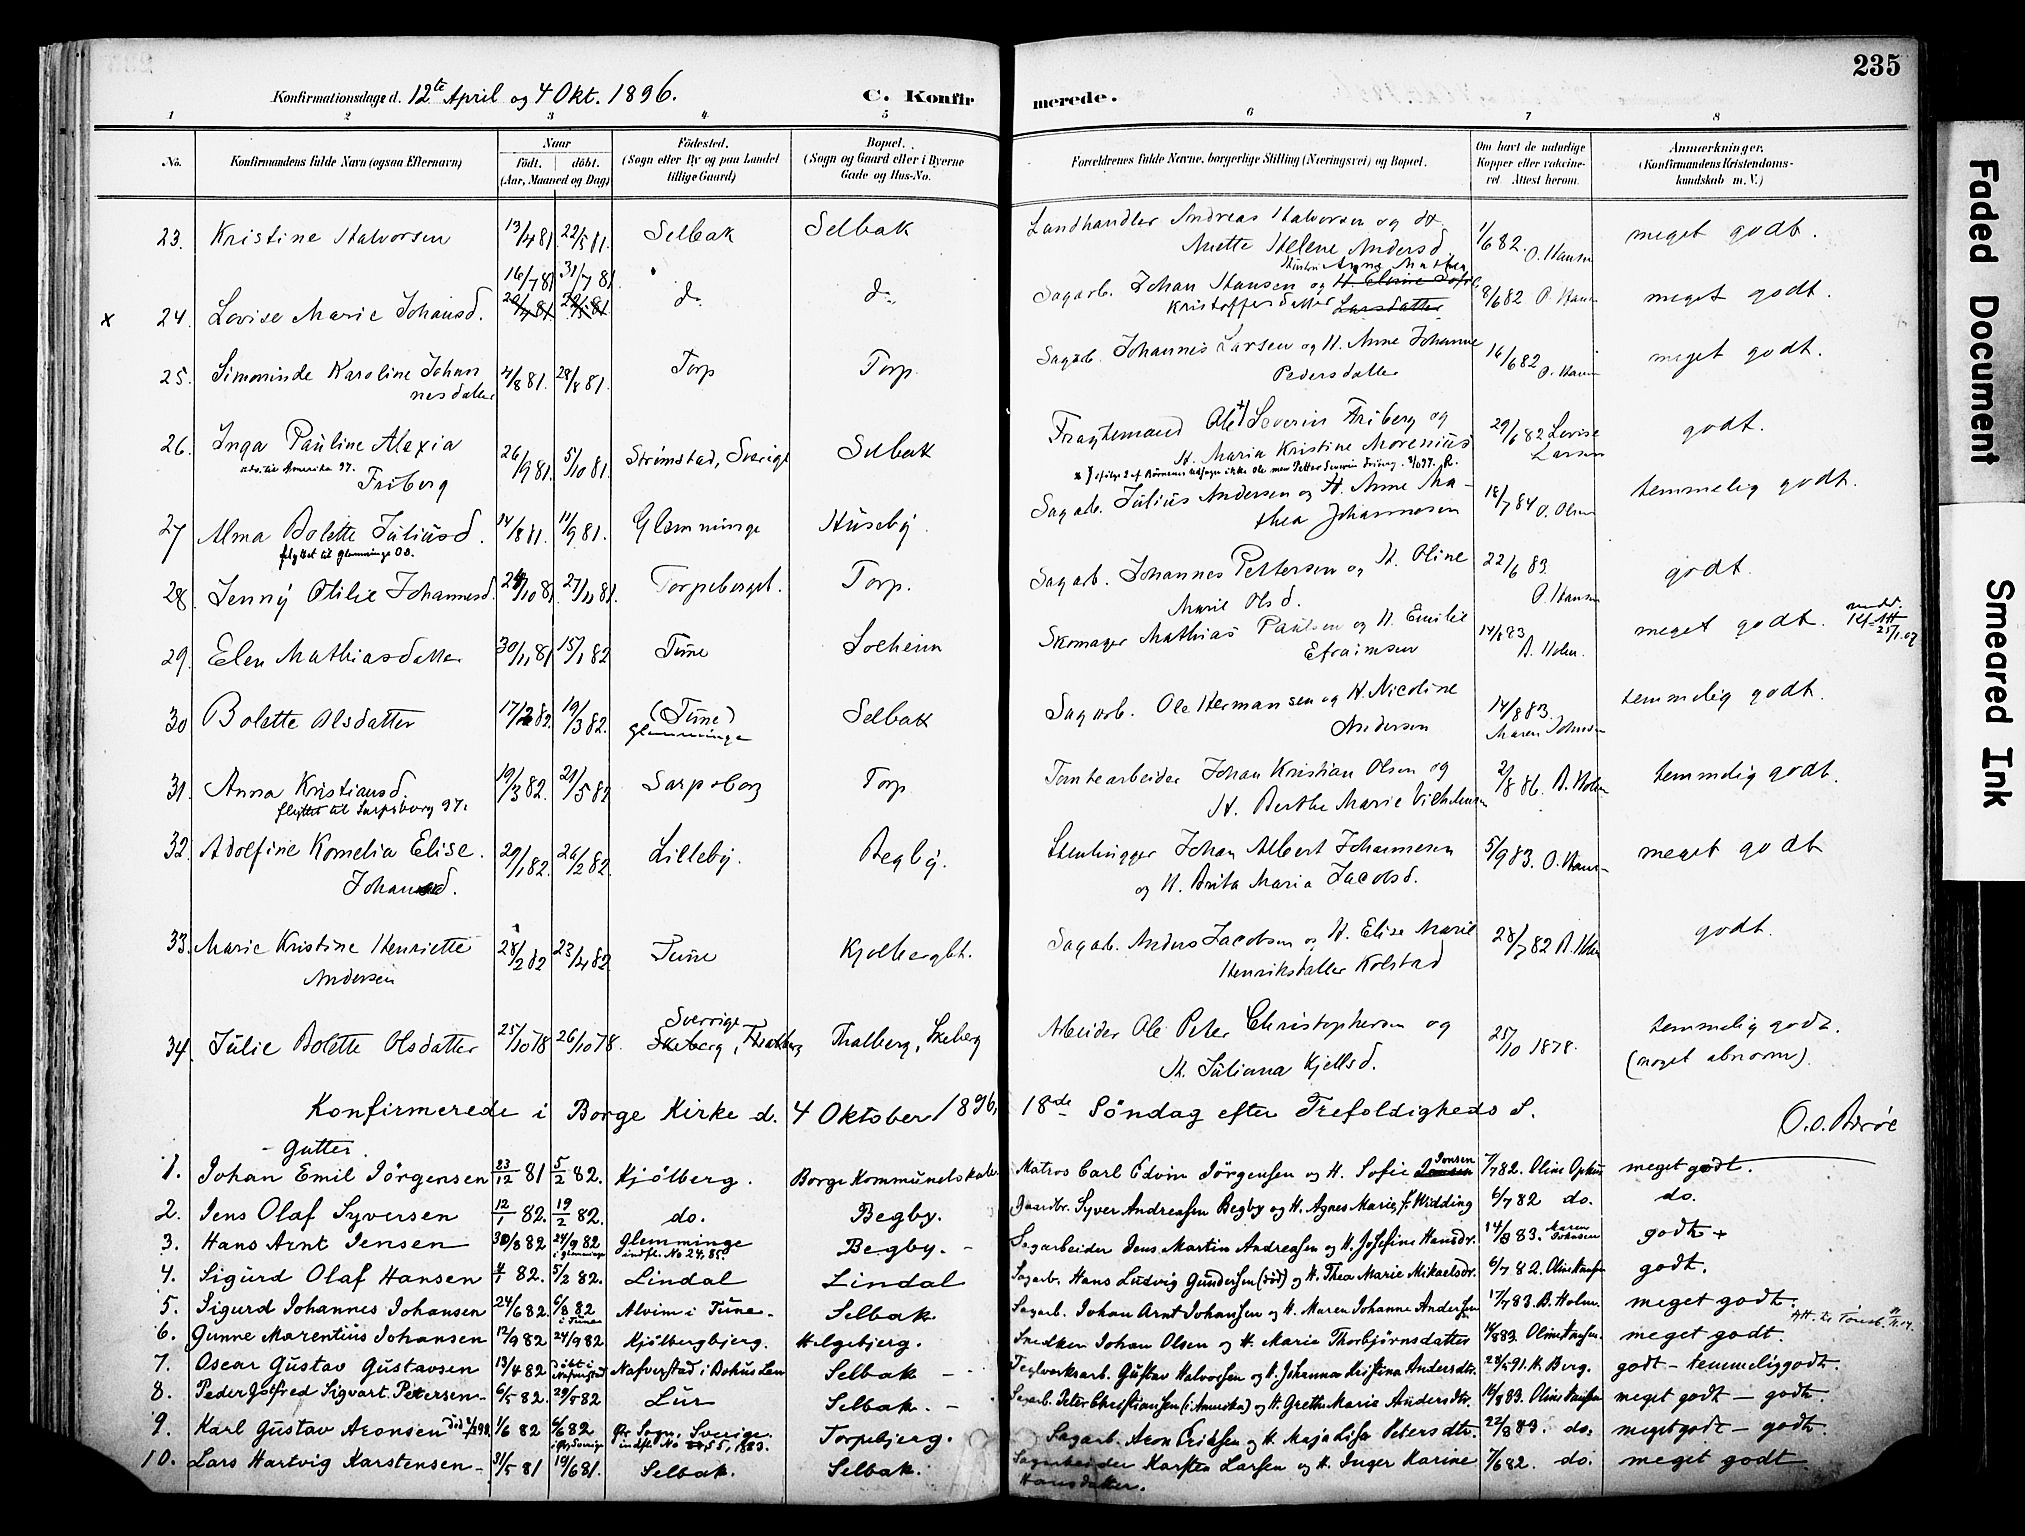 235
Konfirmationsdage d. 12te April og 4 Okt. 1896. C. Konfirmerede.
1 2 3 4 5 6 7 8
No. Konfirmandens fulde Navn (ogsaa Efternavn) Naar født. døbt. (Aar, Maaned og Dag) Fødested. (Sogn eller By og paa Landet tillige Gaard) Bopæl. (Sogn og Gaard eller i Byerne Gade og Hus-No. Forældrenes fulde Navne, borgerlige Stilling (Næringsvei) og Bopæl. Om havt de naturlige Kopper eller vaccineret. Attest herom. Anmærkninger. (Konfirmandens Kristendomskundskab m. V.)
23. Kristine Halvorsen 13/4 81 22/5 81. Selbak Selbak Landhandler Andreas Halvorsen og H. Anette Helene Andersd. 1/6 82. O. Hansen meget godt.
x 24. Lovise Marie Johansd. 16/7 81 31/7 81 do do Sagarb. Johan Hansen og Hustru Anna Mathea Kristoffersdatter Larsdatter 8/6 82 O. Hansen meget godt.
25. Simminde Karoline Johannesdatter 4/8 81. 28/8 81. Torp Torp. Sagarb. Johannes Larsen og H. Anne Johanne Pedersdatter 16/6 82 O. Hansen meget godt.
26. Inga Pauline Alexia Friberg 26/9 81. 5/10 81. Strømstad, Sverige Selbak Fragtemand Ole +) Severin Friberg og H. Maria Kristine Morenius 29/6 82 Lovise Larsen godt.
27 Alma Bolette Juliusd. 14/8 81. 11/9 81. Glemminge Huseby. Sagarb. Julius Andersen og H. Anne Mathea Johannesen 18/7 84 O. Olsen temmelig godt.
flyttet til Glemminge 00.
28. Jenny Otilie Johannesd. 24/10 81. 27/11 81. Torpeberget. Torp. Sagarb. Johannes Pettersen og H. Oline Marie Olsd. 22/6 83 O. Hansen godt.
29. Elen Mathiasdatter 30/11 81 15/1 82 Tune Solheim Skomager Mathias Paulsen og H. Emilie Efraimsen 14/8 83 A. Holm. meget godt.
30 Bolette Olsdatter 17/2 82. 19/3 82. (Tune) Glemminge Selbak Sagarb. Ole Hermansen og H. Nicoline Andersen 14/8 83. Maren Johnsen temmelig godt.
31. Anna Kristiansd. 19/3 82. 29/5 82 Sarpsborg Torp Tomtearbeider Johan Kristian Olsen og H. Berthe Marie Vilhelmsen 2/8 86. A. Holm temmelig godt.
flyttet til Sarpsborg 97.
32. Adolfine Kornelia Elise Johansd. 29/1 82. 26/2 82. Lilleby. Begby. Stenhugger Johan Albert Johannesen og H. Brita Maria Jacobsd. 5/9 83. O. Hansen meget godt
33. Marie Kristine Henriette Andersen 28/2 82 23/4 82 Tune Kjolberght. Sagarb. Anders Jacobsen og H. Elise Marie Henriksdatter Kolstad 28/7 82 A. Holm godt.
34. Julie Bolette Olsdatter 25/10 78 26/10 78. Sverrige Skeberg, Thalberg Thalberg, Skeberg Arbeider Ole Peter Christophersen og H. Juliana Kjellsd. 25/10 1878. temmelig godt. (noget abnorm).
Konfirmerede i Borge Kirke d. 4 Oktober 1896, 18de Söndag efter Trefoldigheds S.
Gutter.
1. Johan Emil Jörgensen 23/12 81 5/2 82. Kjölberg. Borge Kommunelokale Matros Carl Edvin Jörgensen og H. Sofie Jonsen 7/7 82. meget godt.
2. Jens Olaf Syversen 12/1 82. 19/2 82. do. Begby. Gaardbr. Syver Andreasen Begby og H. Agnes Marie, f. Widding 6/7 82 do. do.
3. Hans Arnt Jensen 30/8 82 24/9 82 i Glemminge Glemminge indfl. No 24, 85. Begby. - Sagarbeider Jens Martin Andreasen og H. Josefine Hansdr. 14/8 83. Maren Johnsen godt +
4. Sigurd Olaf Hansen 4/1 82. 5/2 82. Lindal Lindal Sagarb. Hans Ludvig Gundersen (död) og H. Thea Marie Mikaelsdr. 6/7 82. godt.
5. Sigurd Johannes Johansen 24/6 82. 6/8 82 i Tune Alvim i Tune. Selbak Sagarb. Johan Arnt Johansen og H. Maren Johanne Andersen 17/7 83. B. Holm. meget godt.
6. Gunne Marentius Johansen 12/9 82 24/9 82 Kjölbergbjerg. Helgebjerg. Snedker Johan Olsen og H. Maria Thorbjörnsdatter 14/8 83. meget godt.
7. Oscar Gustav Gustavsen 13/4 82 döbt i Nafverstad i Bohus Len Selbak - Teglverksarb. Gustav Halvorsen og H. Johanna Kristina Andersdtr. 29/5 91. K. Berg. godt - temmelig godt.
8. Peder Gotfred Sigvart Petersen 6/5 82. 29/5 82 Lur Selbak. - Sagarb. Peter Christiansen (i Amerika) og H. Grethe Marie Andersdtr. 14/8 83. meget godt - godt.
9. Karl Gustav Aronsen 1/6 82 Sverige. indfl. No 55, 1883. Torpebjerg. Sagarb. Aron Eriksen og H. Maja Lisa Petersdtr. 22/8 83. do. meget godt - godt.
10. Lars Hartvig Karstensen 31/5 81 19/6 81. Selbak. Selbak. Sagarbeider Karsten Larsen og H. Inger Karine Hansdatter. 7/6 82. do. meget godt
Faded Document
Smeared Ink